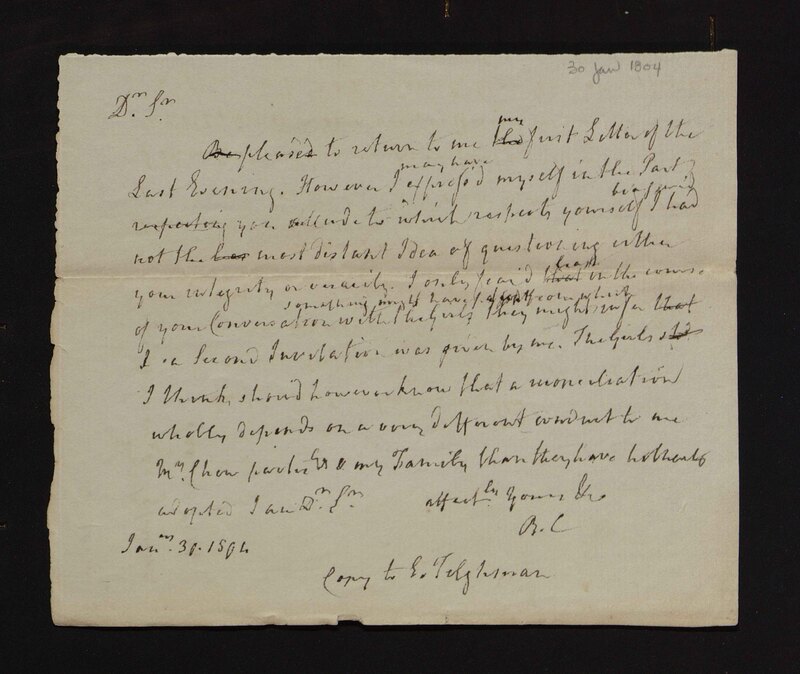 30 Jan 1804
Dr. Sr.
Be pleased to return to me the my first Letter of the
Last Evening. However I may have express'd myself in the Part
respecting you allude to which respects yourself I had
not the most distant Idea of questioning either
your integrity or veracity. I only fear'd that least in the course
of your Conversation with the Girls something might have from which they might infer that
a Second Invitation was given by me. The Girls
I think, should however know that a reconciliation
wholly depends on a very different conduct to me
Mrs. Chew & my Family than they have hitherto
adopted I am Dr. Sr. affectly. Yours &c
B.C
Jany. 30. 1804
Copy to E. Tilghman